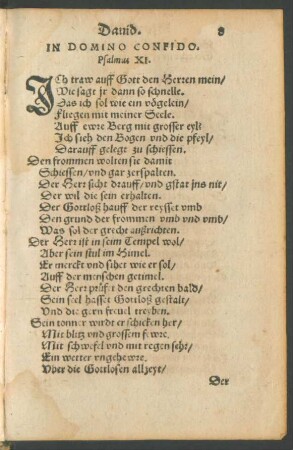 Dauid. 8
IN DOMINO CONFIDO.
Psalmus XI.
ICh traw auff Gott den Herren mein/
Wie sagt jr dann so schnelle.
Das ich sol wie ein vögelein/
Fliegen mit meiner Seele.
Auff ewre Berg mit grosser eyl/
Ich sieh den Bogen vnd die pfeyl/
Darauff gelegt zu schiessen.
Den frommen wolten sie damit
Schiessen/vnd gar zerspalten.
Der Herr sicht drauff/vnd gstat jns nit/
Der wil die sein erhalten.
Der Gottloß hauff der reysset vmb
Den grund der frommen vmb vnd vmb/
Was sol der grecht außrichten.
Der Herr ist in seim Tempel wol/
Aber sein stul im Himel.
Er merckt vnd sihet wie er sol/
Auff der menschen getimel.
Der Herr prüfet den grechten bald/
Sein seel hasset Gottloß gestalt/
Vnd die gern freuel treyben.
Sein tonner wirdt er schicken her/
Mit blitz vnd grossem fewre.
Mit schwefel vnd mit regen sehr/
Ein wetter vngehewre.
Vber die Gottlosen allzeyt/
Der